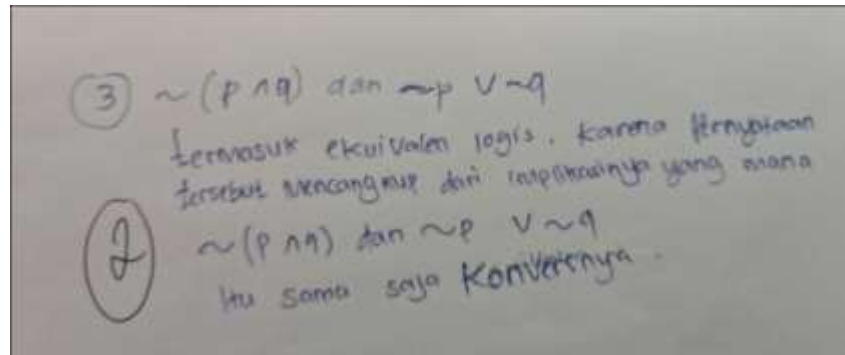 3 ~ (p ∧ q) dan ~p ∨ ~q
termasuk ekuivalen logis. Karena Pernyataan
tersebut mencangkup dari implikasinya yang mana
2 ~ (p ∧ q) dan ~p ∨ ~q
itu sama saja Konversnya.